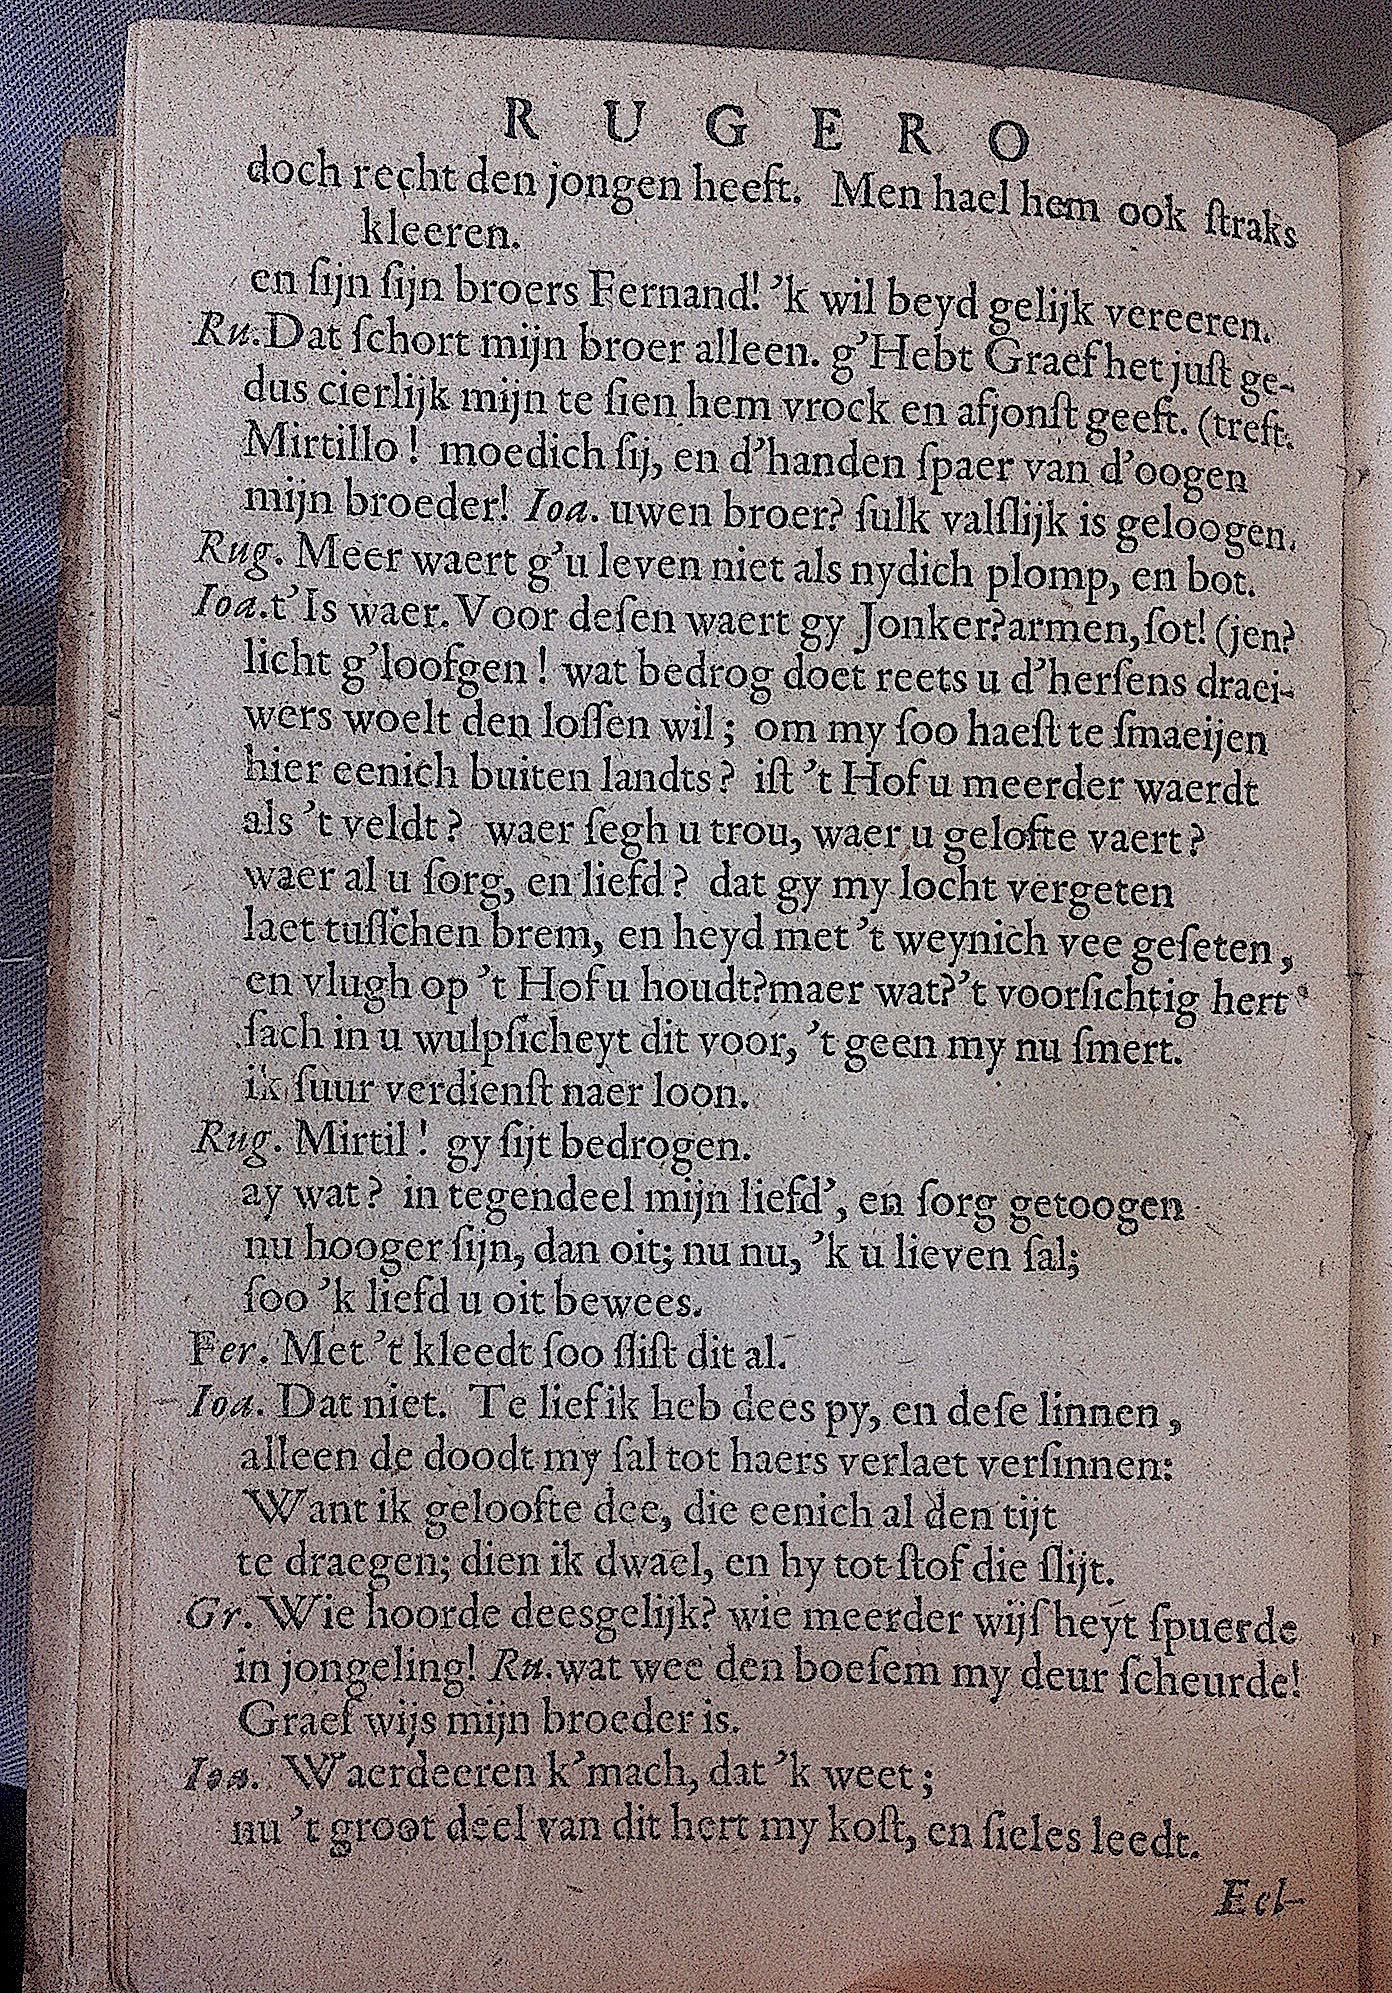 RUGERO
doch recht den jongen heeft. Men hael hem ook ſtraks
kleeren.
en ſijn ſijn broers Fernand! ’k wil beyd gelijk vereeren.
Ru. Dat ſchort mijn broer alleen. g’Hebt Graef het juſt ge-
dus cierlijk mijn te ſien hem vrock en afjonſt geeft. (treft.
Mirtillo! moedich ſij, en d’handen ſpaer van d’oogen
mijn broeder! Ioa. uwen broer? ſulk valſlijk is geloogen.
Rug. Meer waert g’u leven niet als nydich plomp, en bot.
Ioa. t’Is waer. Voor deſen waert gy Jonker? armen, ſot! (jen?
licht g’loofgen! wat bedrog doet reets u d’herſens draei-
wers woelt den loſſen wil; om my ſoo haeſt te ſmaeijen
hier eenich buiten landts? iſt ’t Hof u meerder waerdt
als ’t veldt? waer ſegh u trou, waer u gelofte vaert?
waer al u ſorg, en liefd? dat gy my locht vergeten
laet tuſſchen brem, en heyd met ’t weynich vee geſeten,
en vlugh op ’t Hof u houdt? maer wat? ’t voorſichtig hert
ſach in u wulpſicheyt dit voor, ’t geen my nu ſmert.
ik ſuur verdienſt naer loon.
Rug. Mirtil! gy ſijt bedrogen.
ay wat? in tegendeel mijn liefd’, en ſorg getoogen
nu hooger ſijn, dan oit; nu nu, ’k u lieven ſal;
ſoo ’k liefd u oit bewees.
Fer. Met ’t kleedt ſoo ſliſt dit al.
Ioa. Dat niet. Te lief ik heb dees py, en deſe linnen,
alleen de doodt my ſal tot haers verlaet verſinnen:
Want ik geloofte dee, die eenich al den tijt
te draegen; dien ik dwael, en hy tot ſtof die ſlijt.
Gr. Wie hoorde deesgelijk? wie meerder wijſheyt ſpuerde
in jongeling! Ru. wat wee den boeſem my deur ſcheurde!
Graef wijs mijn broeder is.
Ioa. Waerdeeren k’mach, dat ’k weet;
nu ’t groot deel van dit hert my koſt, en ſieles leedt.
Ech-